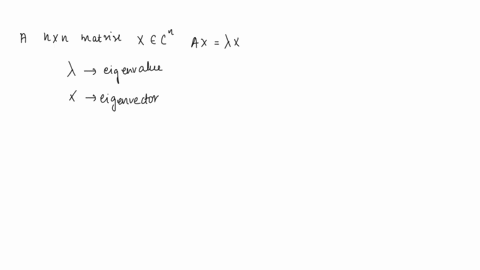 A n×n matrix X ∈ Cⁿ AX = λX
λ → eigenvalue
X → eigenvector